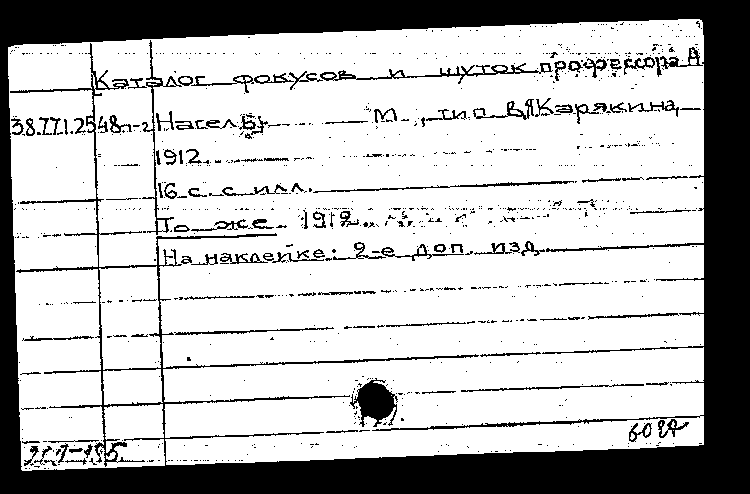 Каталог фокусов и шуток профессора А.
38.77.1.2548п-2 Нагель М., тип В.Я Карякина,
1912.
16 с. с илл.
То же. 1912.
На наклейке: 2-е доп. изд